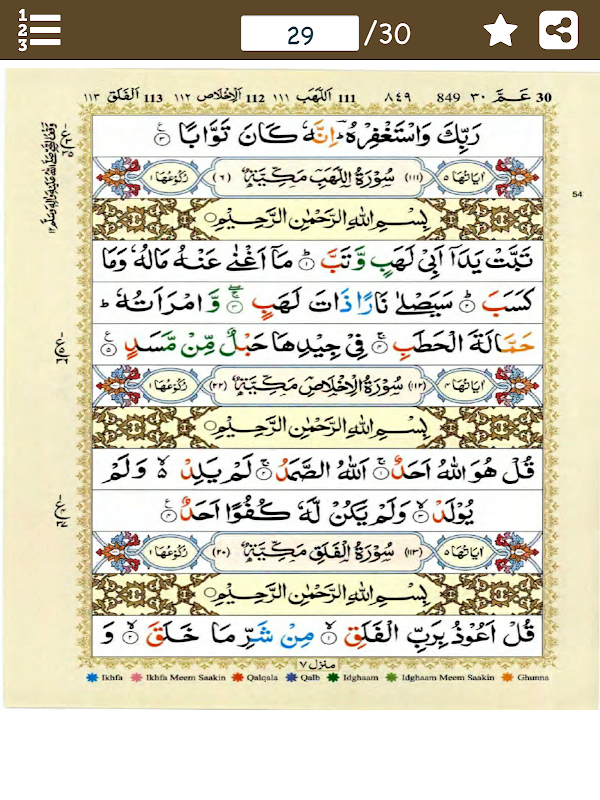 1
2
3
29 /30
30 عَمَّ ٣٠ 849 ٨٤٩ 111 اَللَّهَب ١١١ 112 اَلْاِخْلَاص ١١٢ 113 اَلْفَلَق ١١٣
رَبِّكَ وَاسْتَغْفِرْهُ ؔ اِنَّهٗ كَانَ تَوَّابًا ۝٣
اٰيَاتُهَا ٥ (١١١) سُوْرَةُ اللَّهَبِ مَكِّيَّةٌ (٦) رُكُوْعُهَا ١
بِسْمِ اللهِ الرَّحْمٰنِ الرَّحِيْمِ
تَبَّتْ يَدَاۤ اَبِيْ لَهَبٍ وَّتَبَّ ؕ ۝١ مَاۤ اَغْنٰى عَنْهُ مَالُهٗ وَمَا
كَسَبَ ؕ ۝٢ سَيَصْلٰى نَارًا ذَاتَ لَهَبٍ ۝٣ وَّامْرَاَتُهٗ ؕ
حَمَّالَةَ الْحَطَبِ ۝٤ فِيْ جِيْدِهَا حَبْلٌ مِّنْ مَّسَدٍ ۝٥
اٰيَاتُهَا ٤ (١١٢) سُوْرَةُ الْاِخْلَاصِ مَكِّيَّةٌ (٢٢) رُكُوْعُهَا ١
بِسْمِ اللهِ الرَّحْمٰنِ الرَّحِيْمِ
قُلْ هُوَ اللهُ اَحَدٌ ۝١ اَللهُ الصَّمَدُ ۝٢ لَمْ يَلِدْ ۙ وَلَمْ
يُوْلَدْ ۝٣ وَلَمْ يَكُنْ لَّهٗ كُفُوًا اَحَدٌ ۝٤
اٰيَاتُهَا ٥ (١١٣) سُوْرَةُ الْفَلَقِ مَكِّيَّةٌ (٢٠) رُكُوْعُهَا ١
بِسْمِ اللهِ الرَّحْمٰنِ الرَّحِيْمِ
قُلْ اَعُوْذُ بِرَبِّ الْفَلَقِ ۝١ مِنْ شَرِّ مَا خَلَقَ ۝٢ وَ
54
منزل ٧
Ikhfa Ikhfa Meem Saakin Qalqala Qalb Idghaam Idghaam Meem Saakin Ghunna